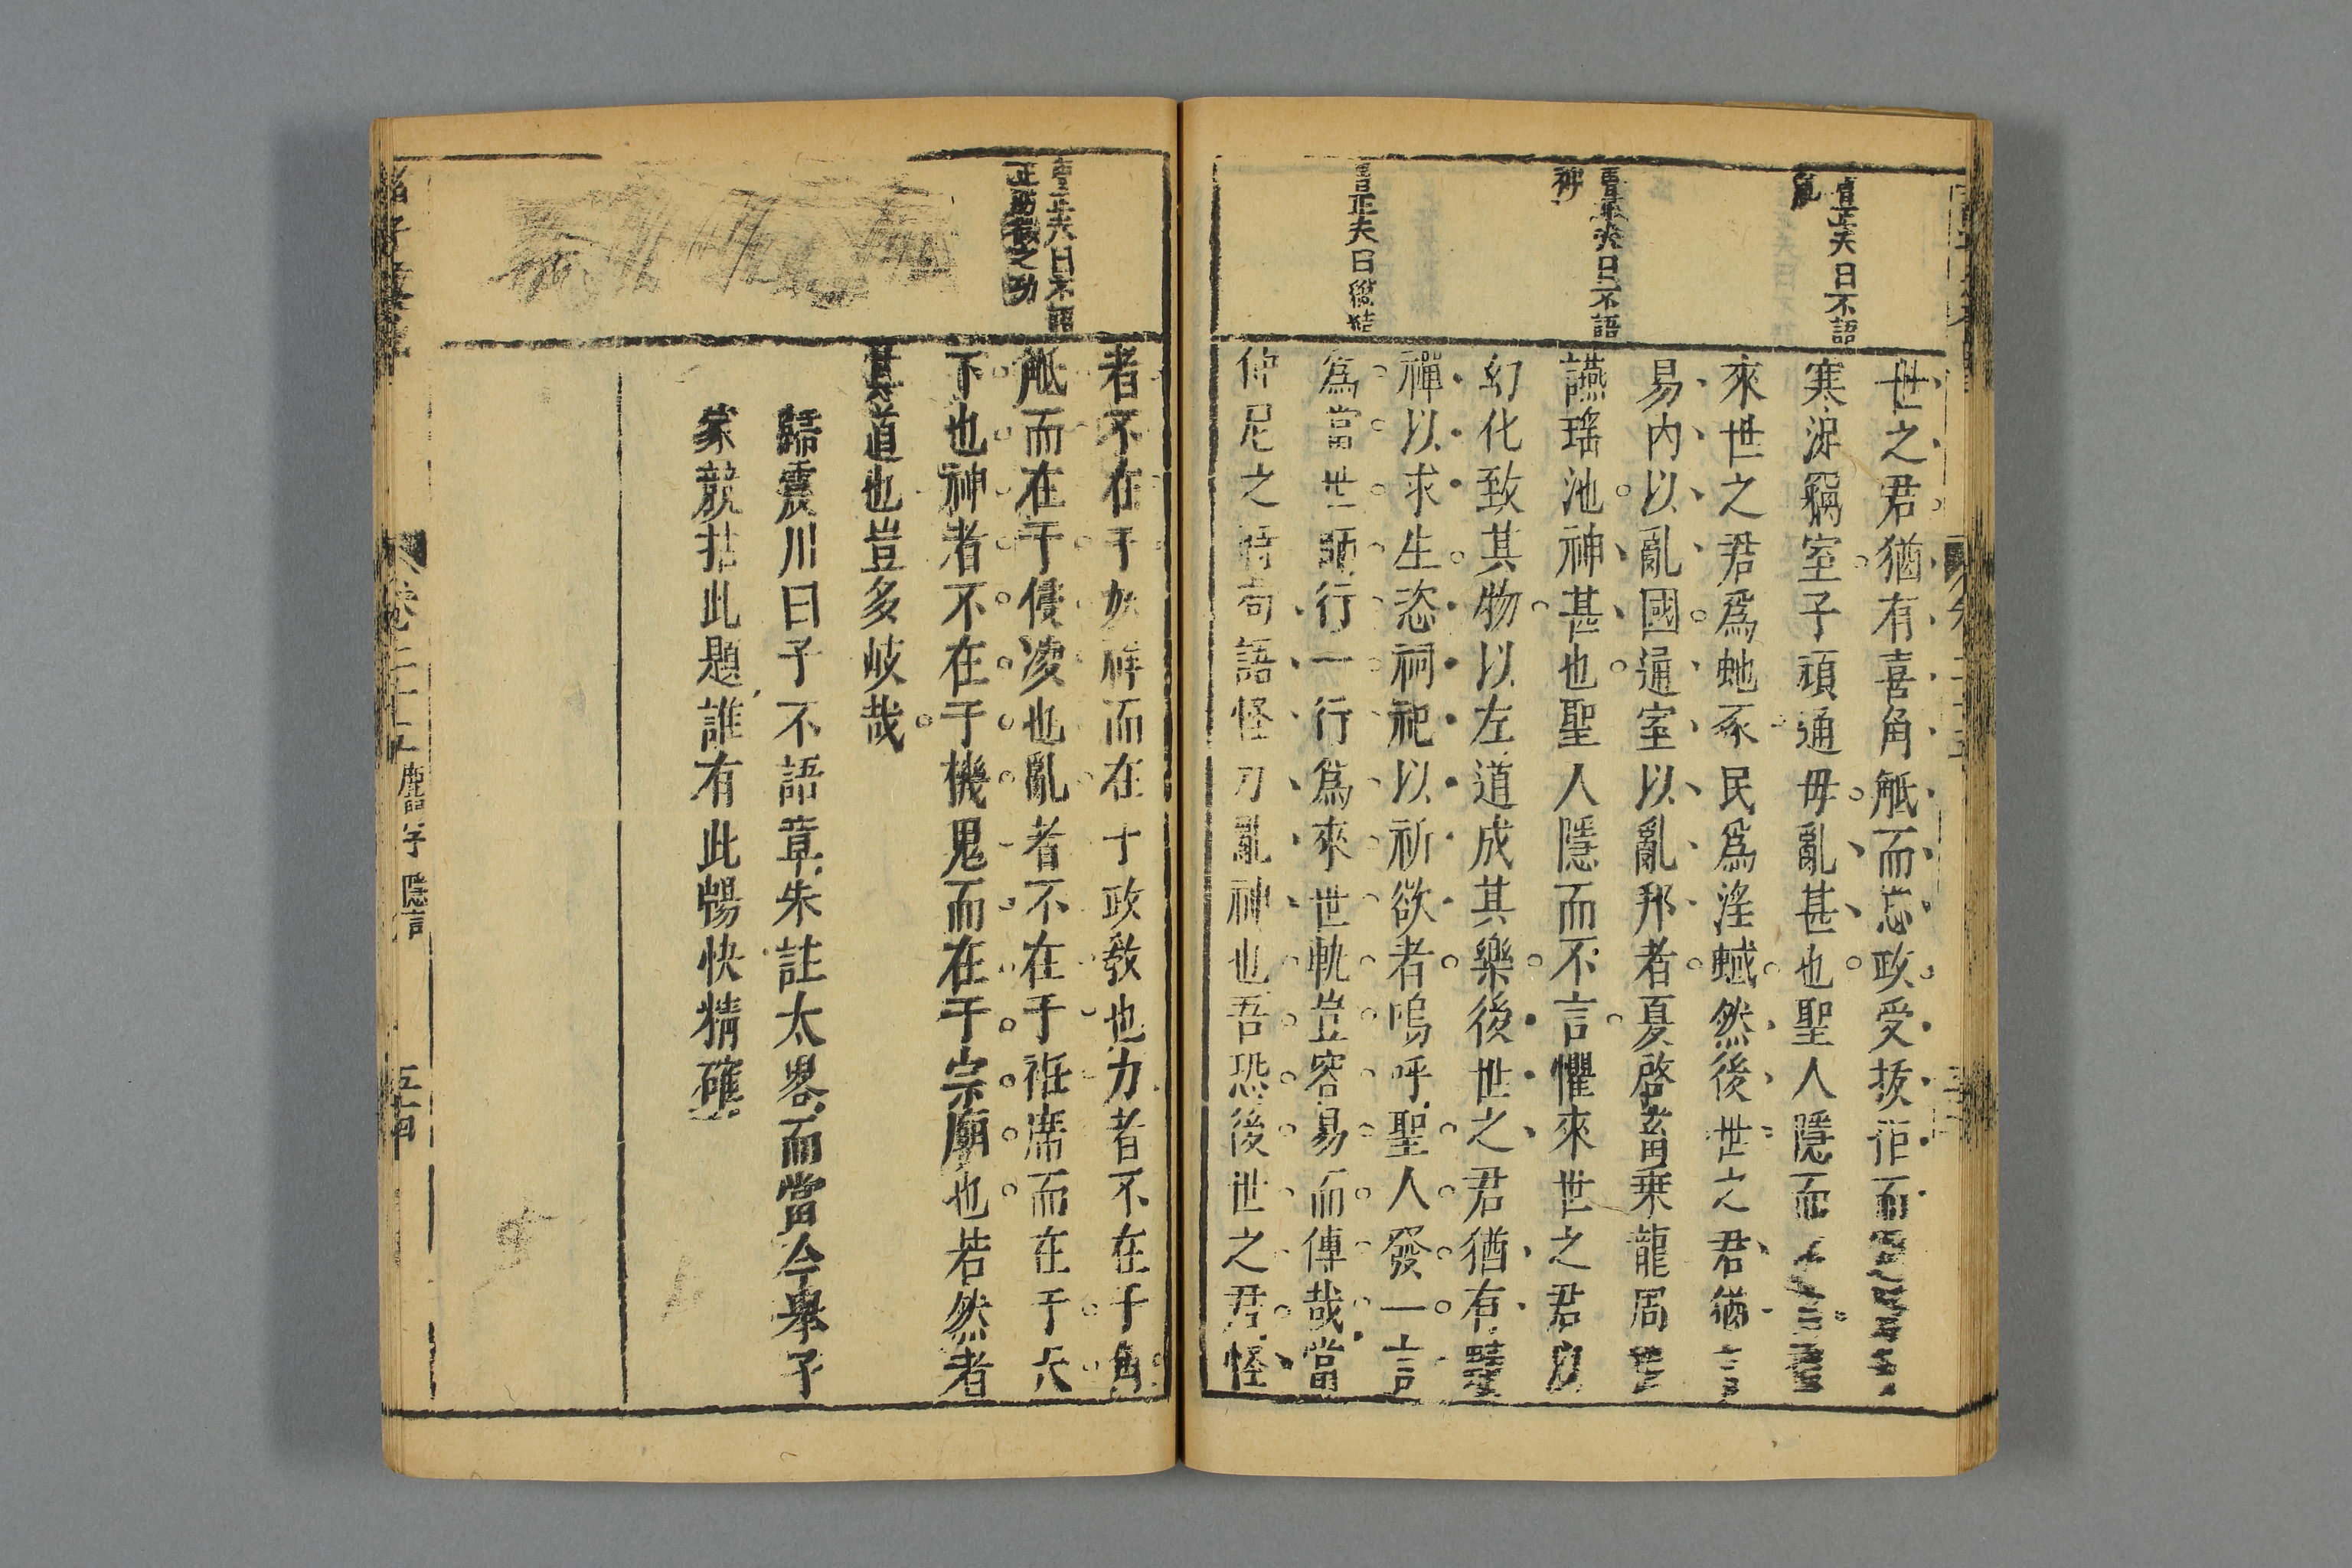 曹正夫曰不語
亂
曹正夫曰不語
神
曹正夫曰繳結
世之君猶有喜角觝而忘政受拔拒而
寒浞竊室子頑通毋亂甚也聖人隱而
來世之君爲虵豕民爲淫蜮然後世之君猶
易內以亂國通室以亂邦者夏啓畜乘龍周
讌瑤池神甚也聖人隱而不言懼來世之君以
幻化致其物以左道成其樂後世之君猶有
禪以求生恣祠祀以祈欲者嗚呼聖人發一言
爲當世師行一行爲來世軌豈容易而傳哉當
仲尼之時苟語怪力亂神也吾恐後世之君怪
曹正夫曰不語
正之功
者不在于妖祥而在于政敎也力者不在于角
觝而在于侵凌也亂者不在于袵席而在于天
下也神者不在于機鬼而在于宗廟也若然者
其道也豈多岐哉
歸震川曰子不語章朱註太畧而當今舉子
家競拈此題誰有此暢快精確
卷二十五 鹿門子 隱言